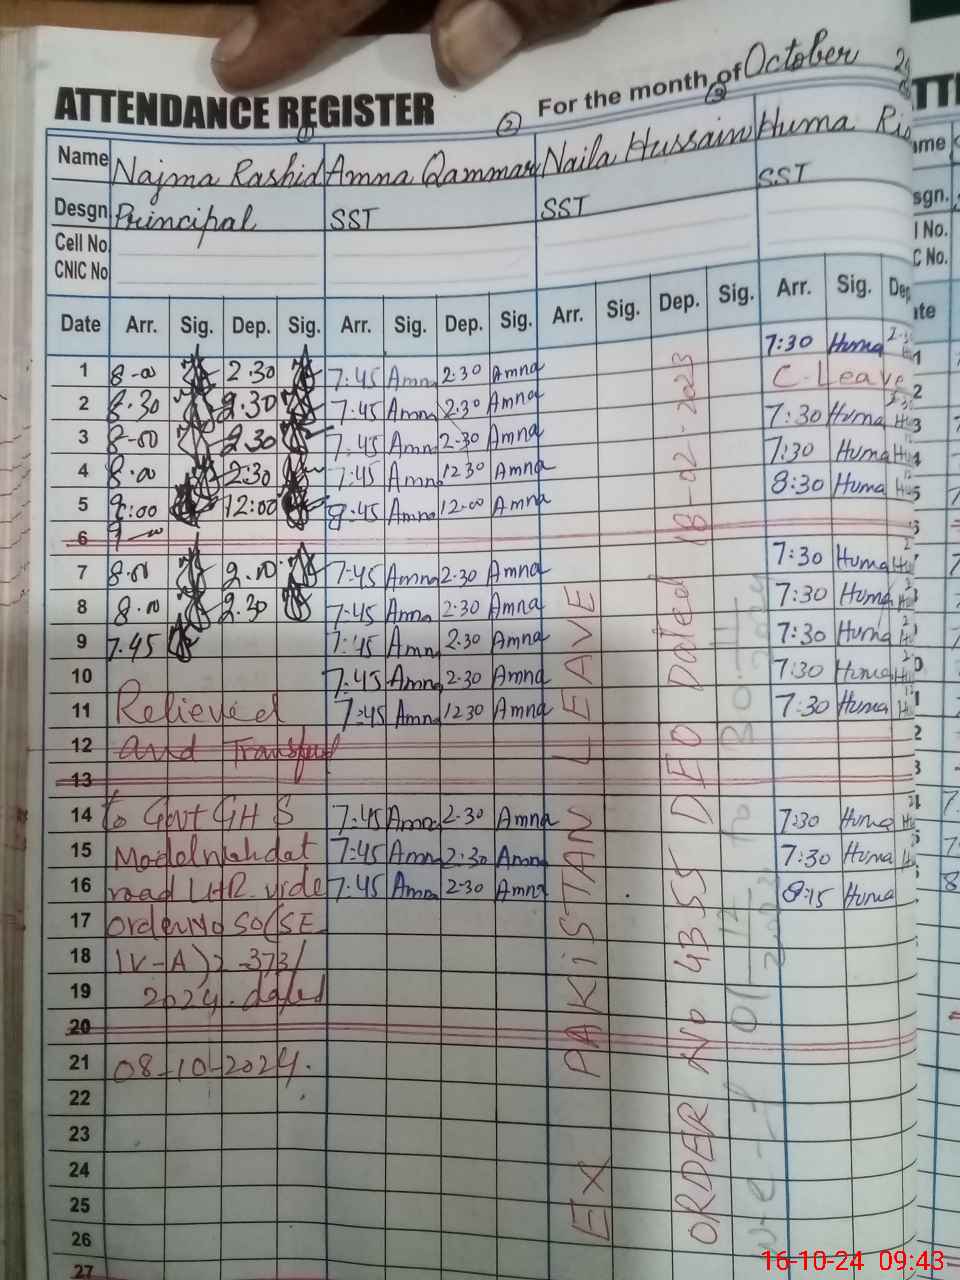 ATTENDANCE REGISTER For the month of October
① ② ③
Name Najma Rashid Amna Qammar Naila Hussain Huma
Desgn. Principal SST SST SST
Cell No.
CNIC No
Date Arr. Sig. Dep. Sig. Arr. Sig. Dep. Sig. Arr. Sig. Dep. Sig. Arr. Sig. Dep
1 8-00 2.30 7:45 Amna 2.30 Amna 7:30 Huma
2 8.30 2.30 7:45 Amna 2.30 Amna C. Leave
3 8-00 2.30 7:45 Amna 2-30 Amna 7:30 Huma
4 8.00 2.30 7:45 Amna 12 30 Amna 7:30 Huma
5 12:00 8:45 Amna 12.00 Amna 8:30 Huma
6
7 8.00 7:45 Amna 2.30 Amna 7:30 Huma
8 2.30 7:45 Amna 2.30 Amna 7:30 Huma
9 7.45 7:45 Amna 2.30 Amna 7:30 Huma
10 7:45 Amna 2.30 Amna 7:30 Huma
11 Relieved 7:45 Amna 12 30 Amna 7:30 Huma
12 and
13
14 to Govt GHS 7:45 Amna 2.30 Amna 7:30 Huma
15 Model 7:45 Amna 2:30 Amna 7:30 Huma
16 road LHR. vide 7:45 Amna 2.30 Amna 8:15 Huma
17 order No SO(SE
18 IV-A) 2-373/
19 2024. dated
20
21 08-10-2024.
22
23
24
25
26
27
Ex PAKiSTAN LEAVE
ORDER No 4355 DEO Dated 18-02-2023
w-e-f 01-12-2023 to 30-11-2024
16-10-24 09:43